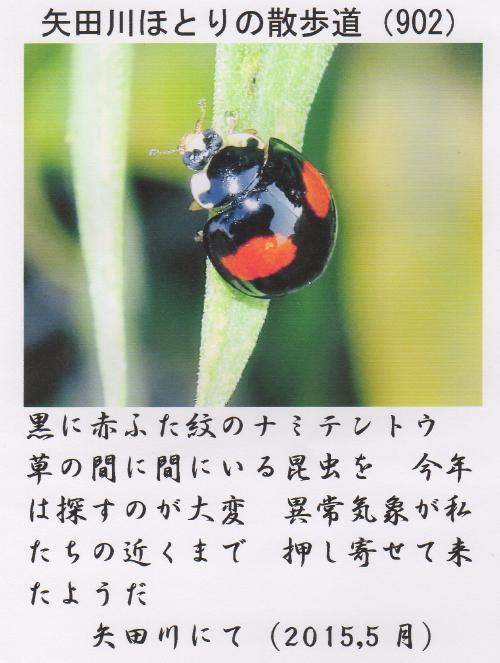 矢田川ほとりの散歩道（902）
黒に赤ふた紋のナミテントウ
草の間に間にいる昆虫を　今年
は探すのが大変　異常気象が私
たちの近くまで　押し寄せて来
たようだ
矢田川にて（2015,5月）